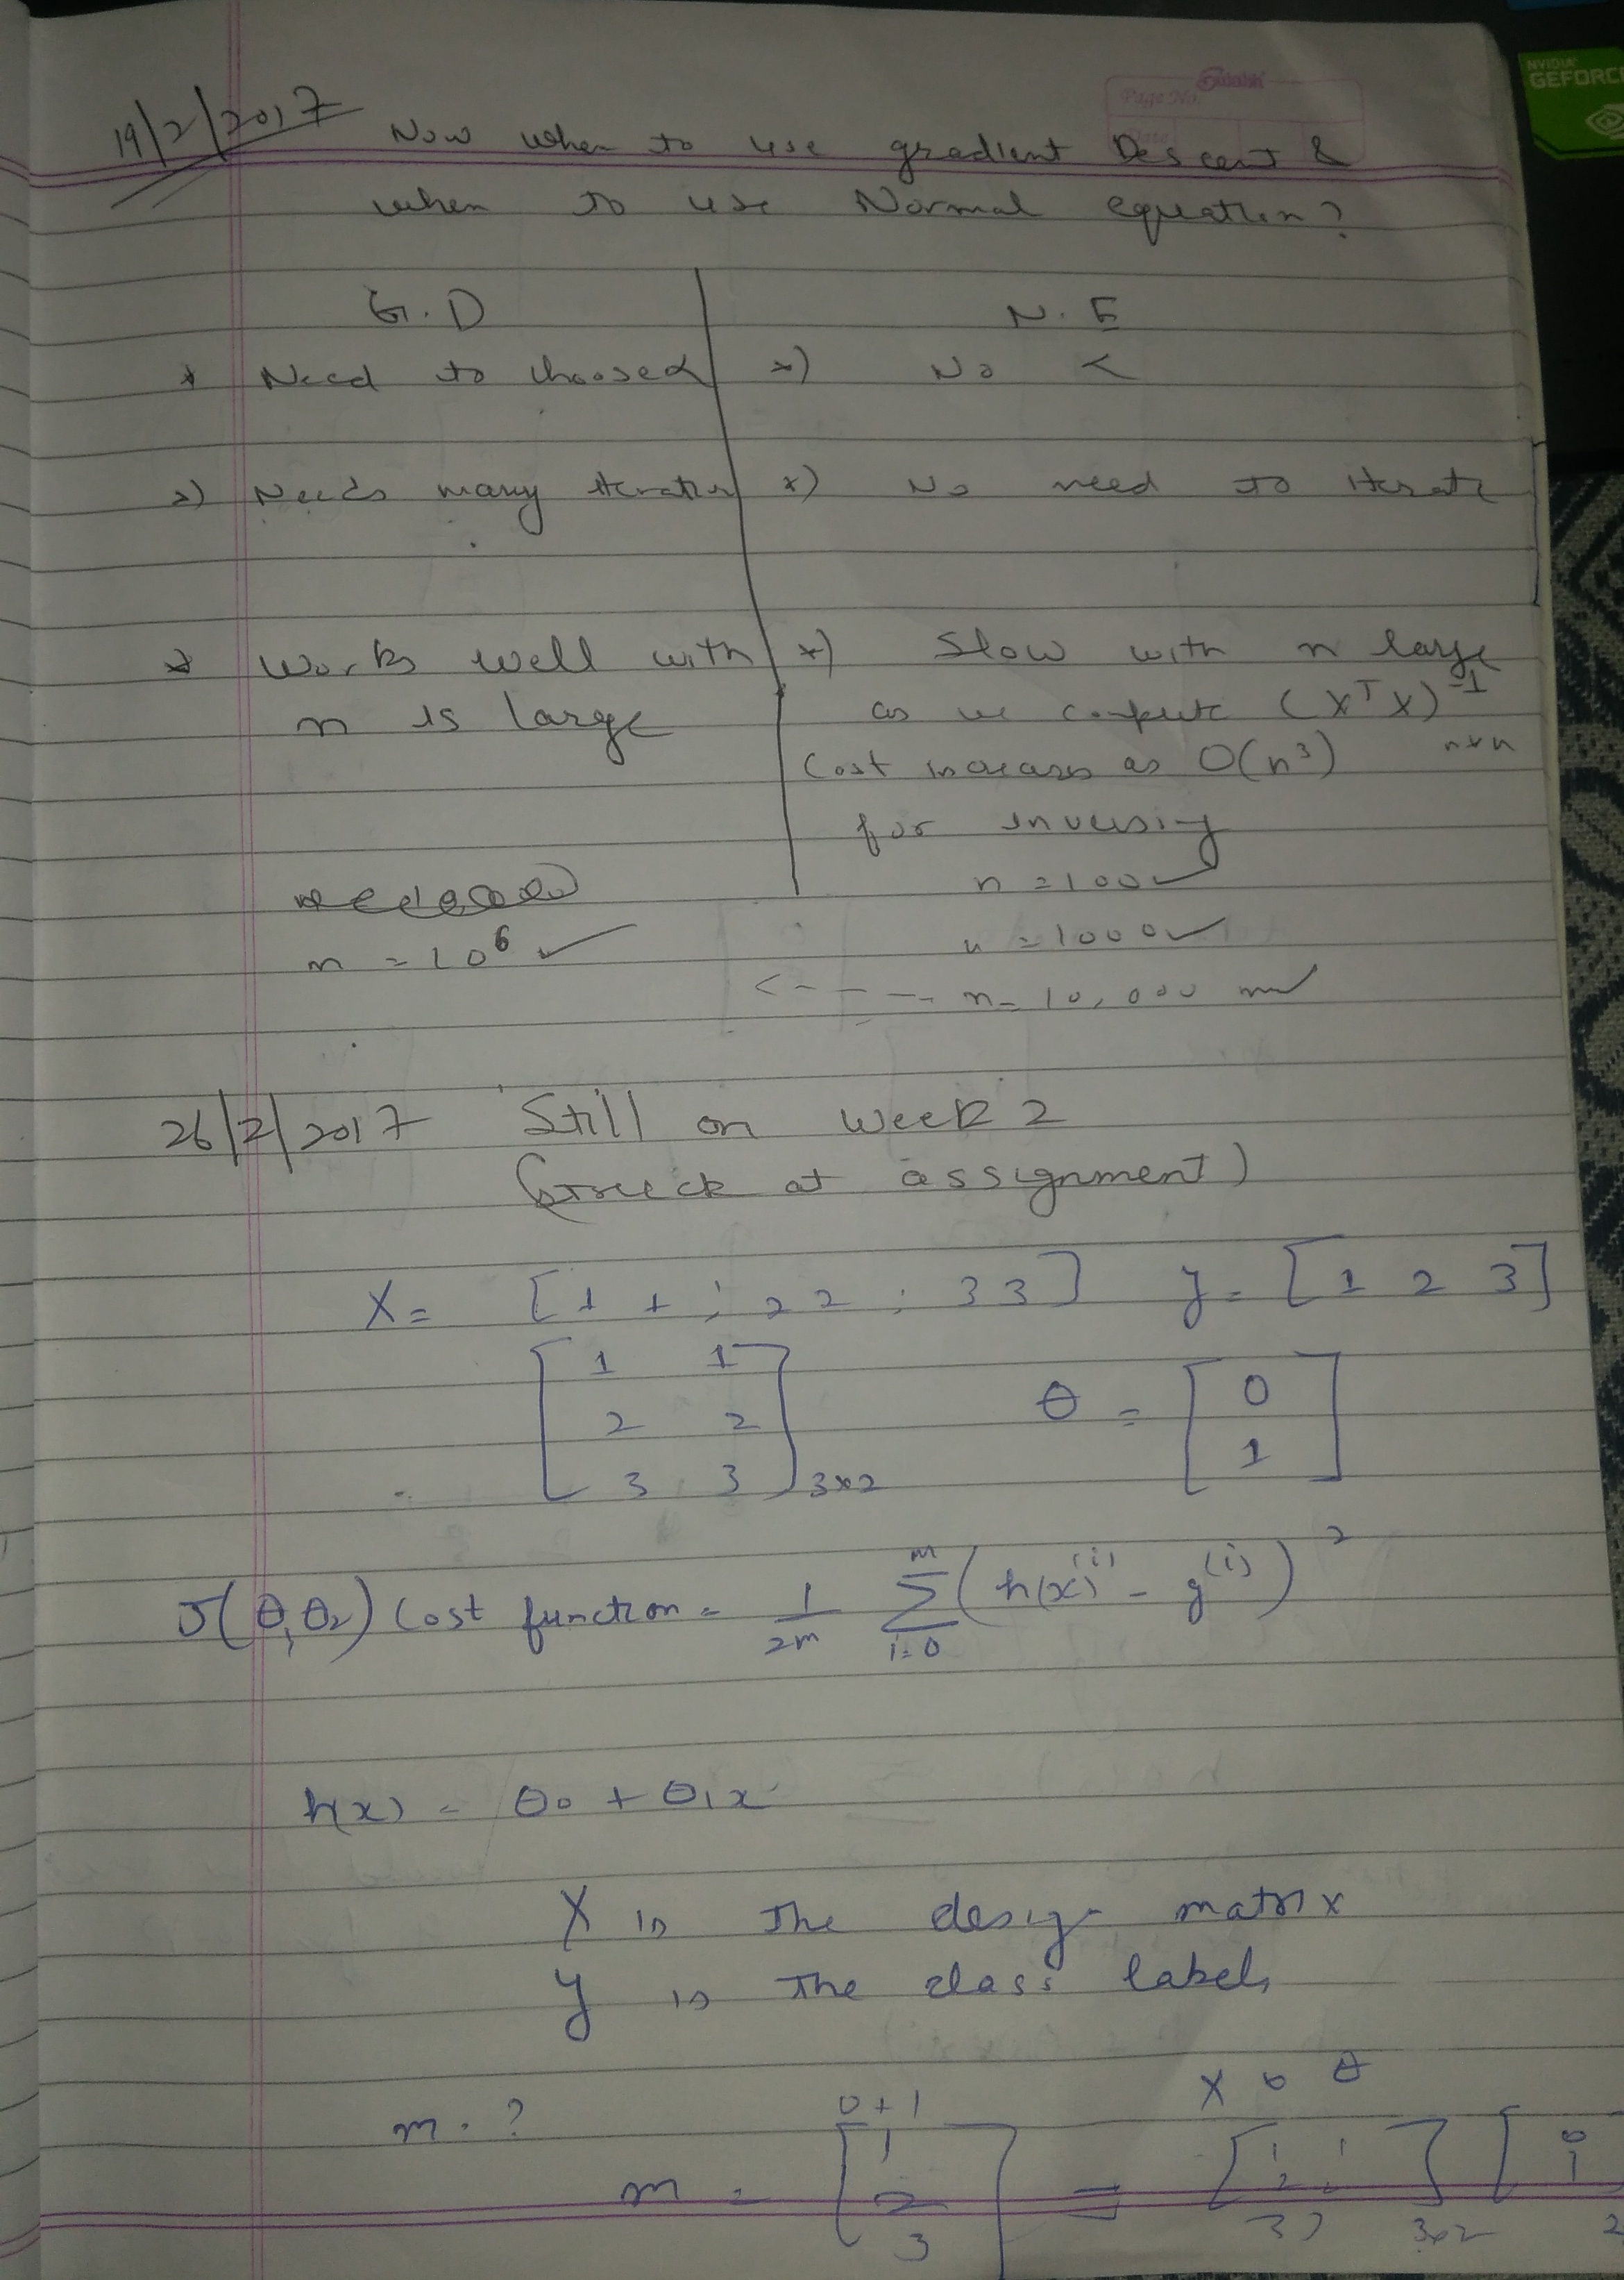 NVIDIA
GEFORCE
Sulabh
Page No.
19/2/2017 Now when to use gradient Descent &
when to use Normal equation?
G.D N.E
* Need to choose α *) No α
*) Needs many iteration *) No need to iterate
* Works well with *) Slow with n large
n is large as we compute (XᵀX)⁻¹
n×n
Cost increases as O(n³)
for inversing
n = 100 ✓
n = 10⁶ ✓ n = 1000 ✓
<---- n = 10,000
26/2/2017 Still on Week 2
(struck at assignment)
X = [1 1 ; 2 2 ; 3 3] y = [1 2 3]
[1 1
2 2
3 3] 3×2
θ = [0
1]
J(θ, θ₂) Cost function = 1/2m Σ i=0 m (h(x)⁽ⁱ⁾ - y⁽ⁱ⁾)²
h(x) = θ₀ + θ₁x
X is the design matrix
y is the class labels
X θ
m = ? 0+1
m = [1 2 3] = [1 1
2 2
3 3×2